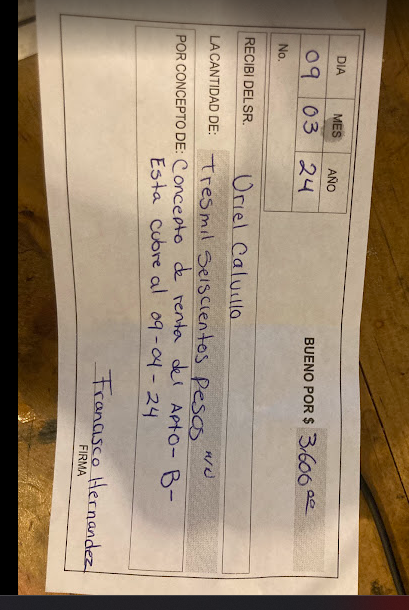 DIA MES AÑO
09 03 24
No.
BUENO POR $ 3600 00
RECIBI DEL SR. Uriel Calvillo
LA CANTIDAD DE: Tresmil Seiscientos pesos M/N
POR CONCEPTO DE: Concepto de renta del Apto-B-
Esta cubre al 09-04-24
Francisco Hernandez
FIRMA